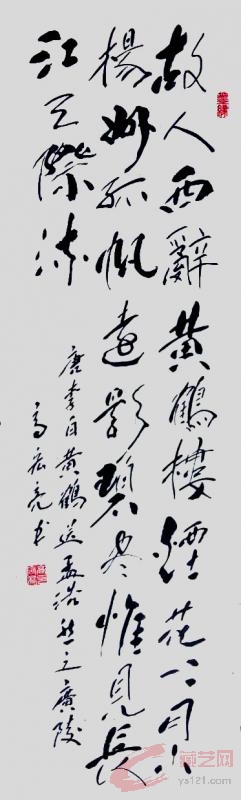 故人西辭黃鶴樓煙花三月下
楊州孤帆遠影碧空尽惟見長
江天際流
唐李白黃鶴送孟浩然之廣陵
高宏亮书
藏艺网
ys121.com